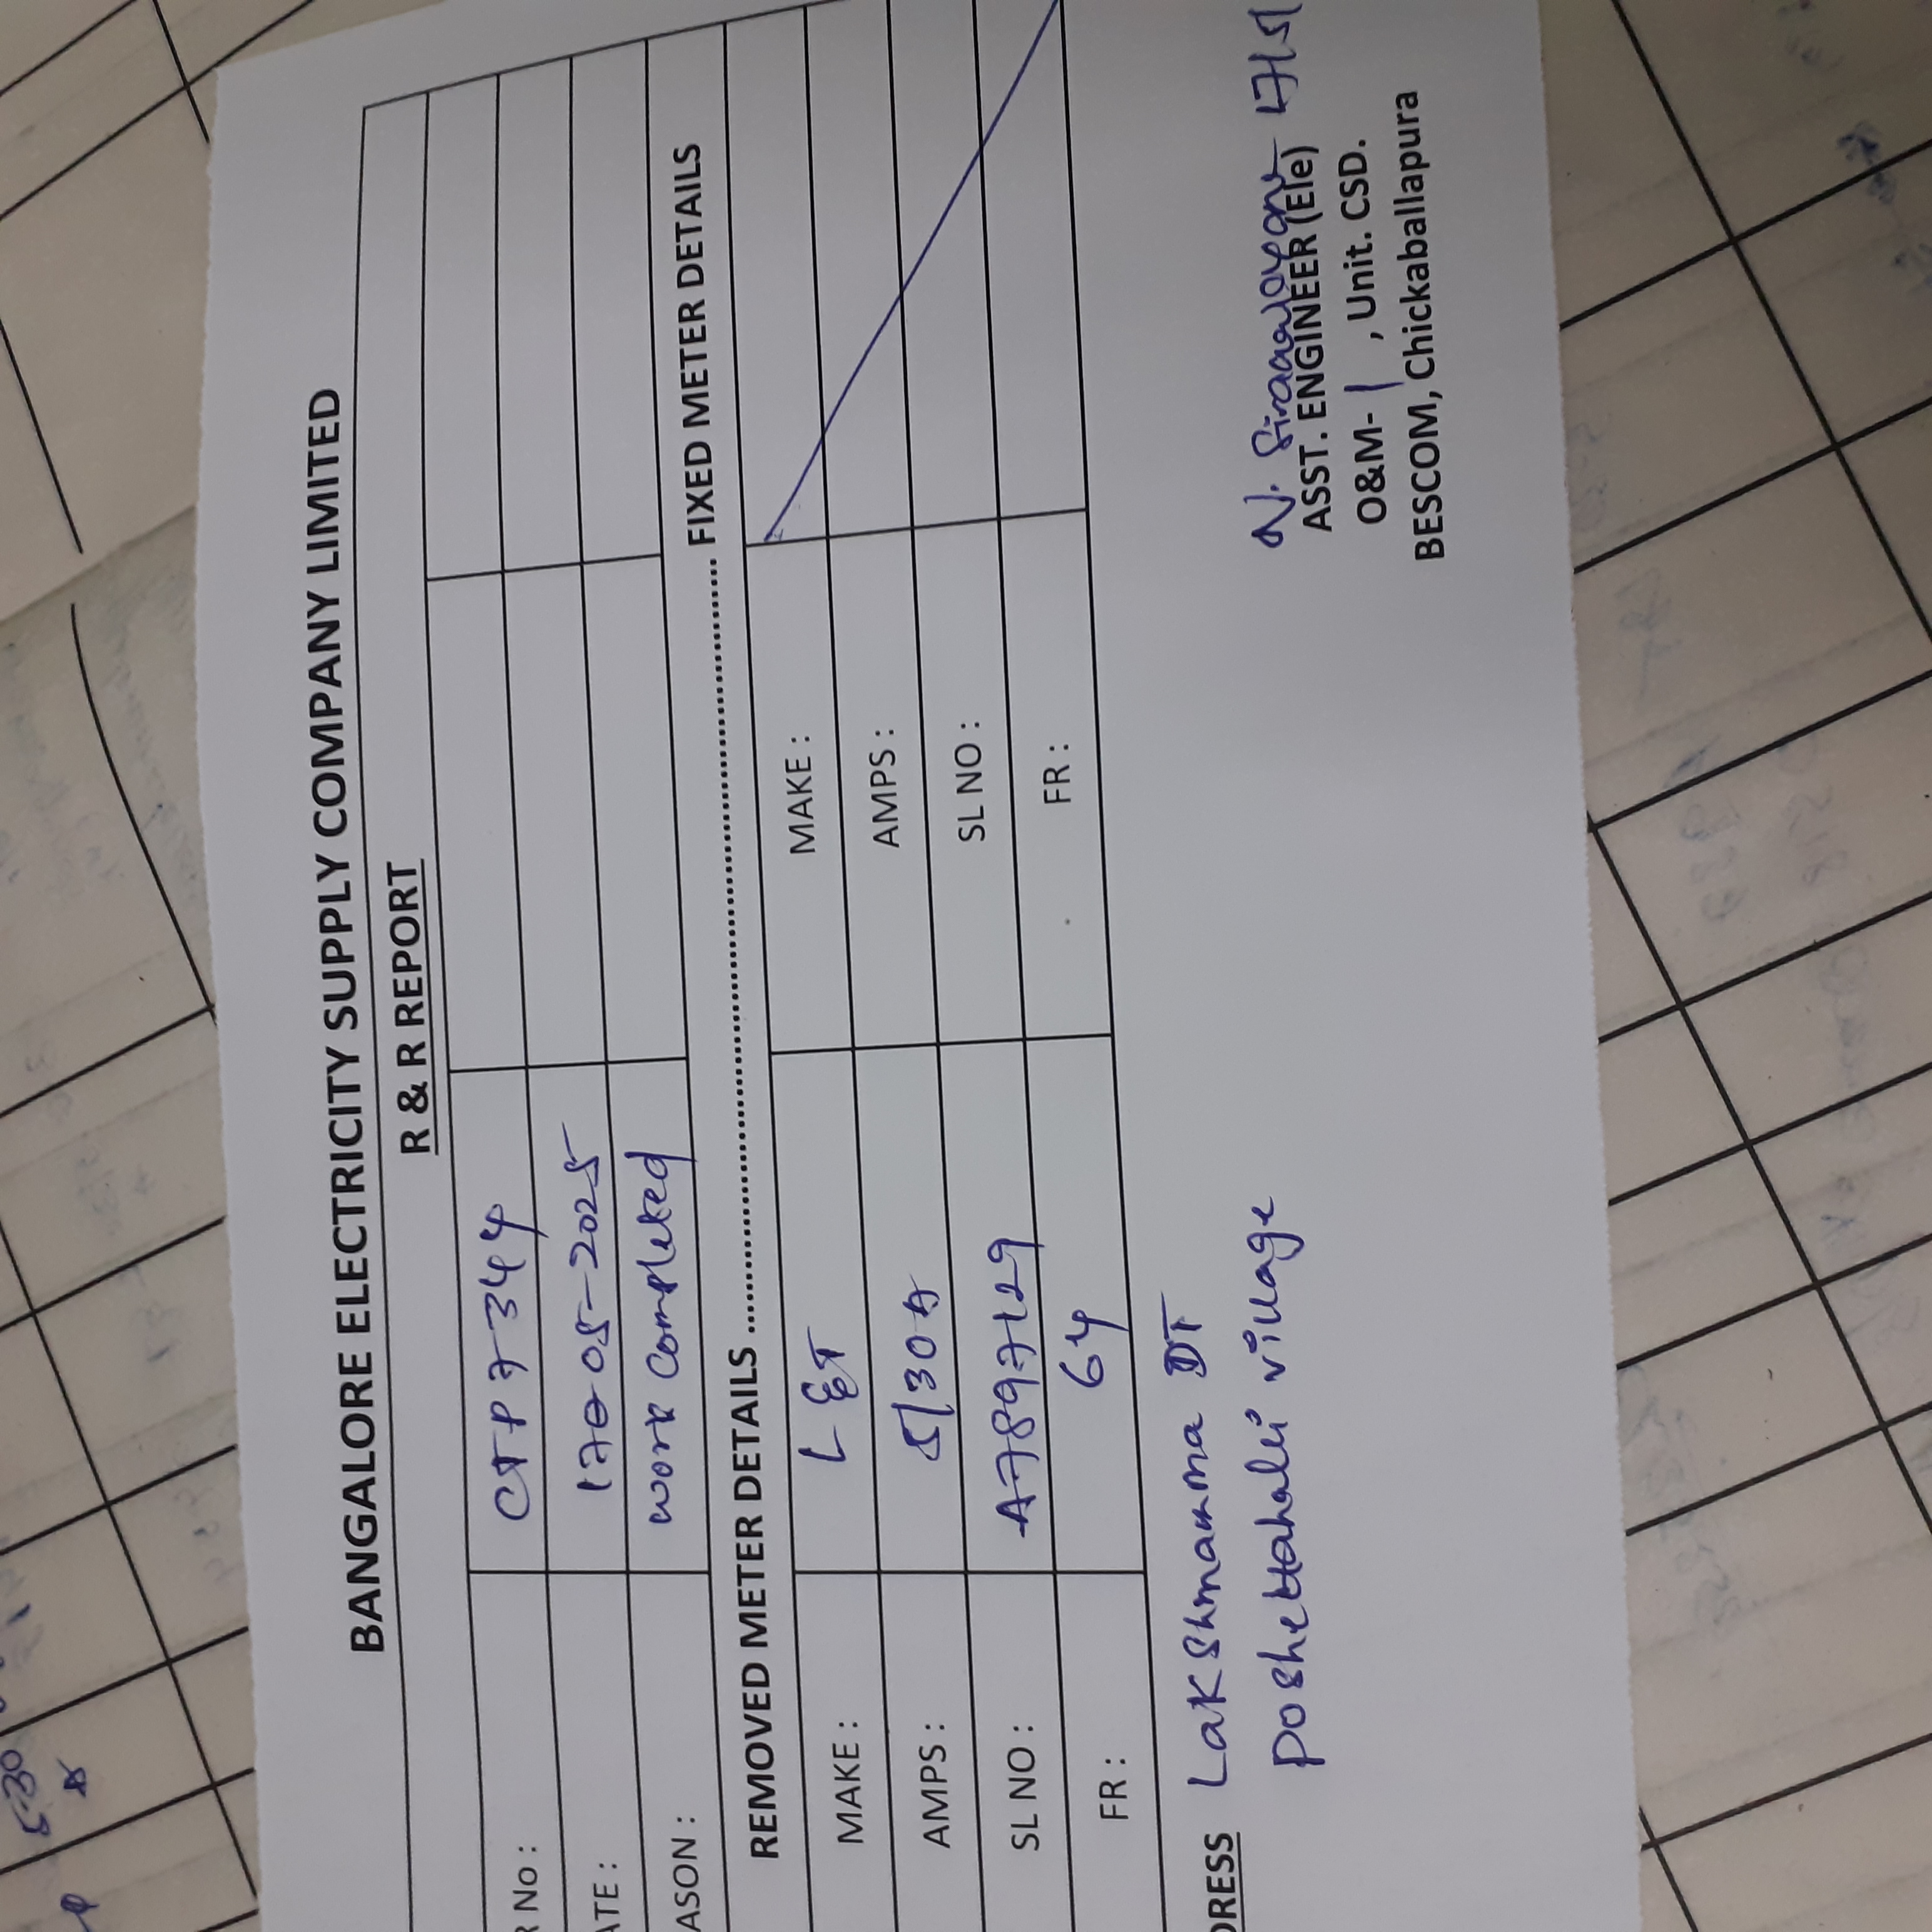 BANGALORE ELECTRICITY SUPPLY COMPANY LIMITED
R & R REPORT
R No : CTP 7344
ATE : 17-05-2025
ASON : work completed
REMOVED METER DETAILS ........ FIXED METER DETAILS
MAKE : L&T MAKE :
AMPS : 5/30A AMPS :
SL NO : A7897129 SL NO :
FR : 64 FR :
DRESS Lakshmamma DT
Poshettahalli village
N.
ASST. ENGINEER (Ele)
O&M- 1 , Unit. CSD.
BESCOM, Chickaballapura